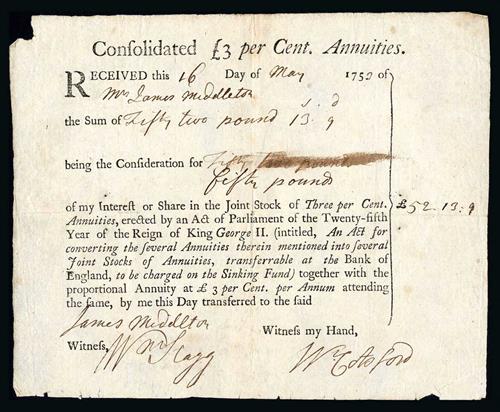 Consolidated £3 per Cent. Annuities.
RECEIVED this 16 Day of May 1752 of
Mr James Middleton
s. d
the Sum of Fifty two pound 13. 9
being the Consideration for Fifty two pounds
fifty pounds
of my Interest or Share in the Joint Stock of Three per Cent. £52. 13: 9
Annuities, erected by an Act of Parliament of the Twenty-fifth
Year of the Reign of King George II. (intitled, An Act for
converting the several Annuities therein mentioned into several
Joint Stocks of Annuities, transferrable at the Bank of
England, to be charged on the Sinking Fund) together with the
proportional Annuity at £ 3 per Cent. per Annum attending
the same, by me this Day transferred to the said
James Middleton
Witness my Hand,
Witness, Wm Flagg
Wm